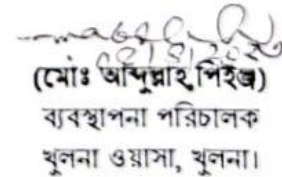 (মোঃ আব্দুল্লাহ্ পিইঞ্জ)
ব্যবস্থাপনা পরিচালক
খুলনা ওয়াসা, খুলনা।